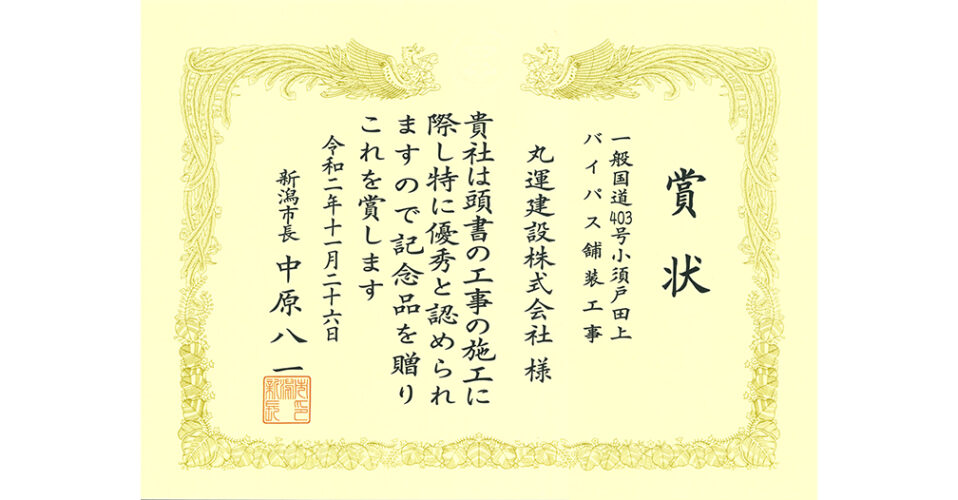 賞状
一般国道403号小須戸田上
バイパス舗装工事
丸運建設株式会社 様
貴社は頭書の工事の施工に
際し特に優秀と認められ
ますので記念品を贈り
これを賞します
令和二年十一月二十六日
新潟市長 中原八一
新潟市長之印